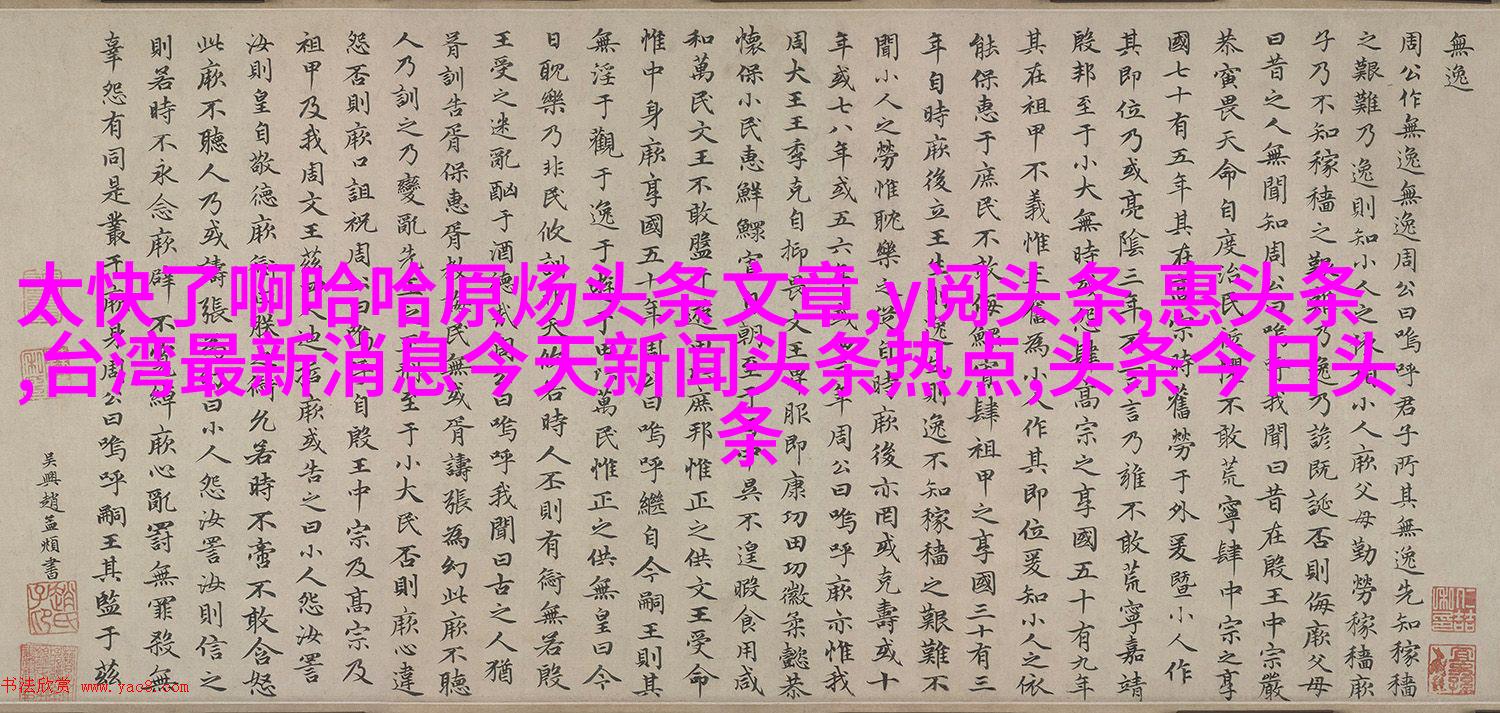 無逸
周公作無逸無逸周公曰嗚呼君子所其無逸先知稼穡
之艱難乃逸則知小人之小人厥父母勤勞稼穡厥
子乃不知稼穡之乃逸乃諺既誕否則侮厥父母
曰昔之人無聞知周公曰我聞曰昔在殷王中宗嚴
恭寅畏天命自度治民懼不敢荒寧肆中宗之享
國七十有五年其在宗時舊勞于外爰暨小人作
其即位乃或亮陰三年不言乃雍不敢荒寧嘉靖
殷邦至于小大無時肆高宗之享國五十有九年
其在祖甲不義惟王舊為小人作其即位爰知小人之依
能保惠于庶民不敢侮鰥肆祖甲之享國三十有三
年自時厥後立王生逸則逸不知稼穡之艱難不
聞小人之勞惟耽樂之從自時厥後亦罔或克壽或十
年或七八年或五六年周公曰嗚呼厥亦惟我
周大王王季克自抑畏文王卑服即康功田功徽柔懿恭
懷保小民惠鮮鰥寡自朝至于昃不遑暇食用咸
和萬民文王不敢盤于遊庶邦惟正之供文王受命
惟中身厥享國五十年周公曰嗚呼繼自今嗣王則其
無淫于觀于逸于遊于田萬民惟正之供無皇曰今
日耽樂乃非民攸訓天攸若時人丕則有愆無若殷
王受之迷亂酗于酒德哉周公曰嗚呼我聞曰古之人猶
胥訓告胥保惠胥教民無或胥譸張為幻此厥不聽
人乃訓之乃變亂先王之至于小大民否則厥心違
怨否則厥口詛祝周公曰嗚自殷王中宗及高宗及
祖甲及我周文王茲人迪哲厥或告之曰小人怨汝詈
汝則皇自敬德厥愆朕之愆允若時不啻不敢含怒
此厥不聽人乃或譸張為曰小人怨汝詈汝則信之
則若時不永念厥辟不寬綽厥心亂罰無罪殺無
辜怨有同是叢于厥身周公曰嗚呼嗣王其監于茲
吳興趙孟頫書
太快了啊哈哈原炀头条文章,y阅头条,惠头条
,台湾最新消息今天新闻头条热点,头条今日头
条
书法欣赏 www.yac8.com